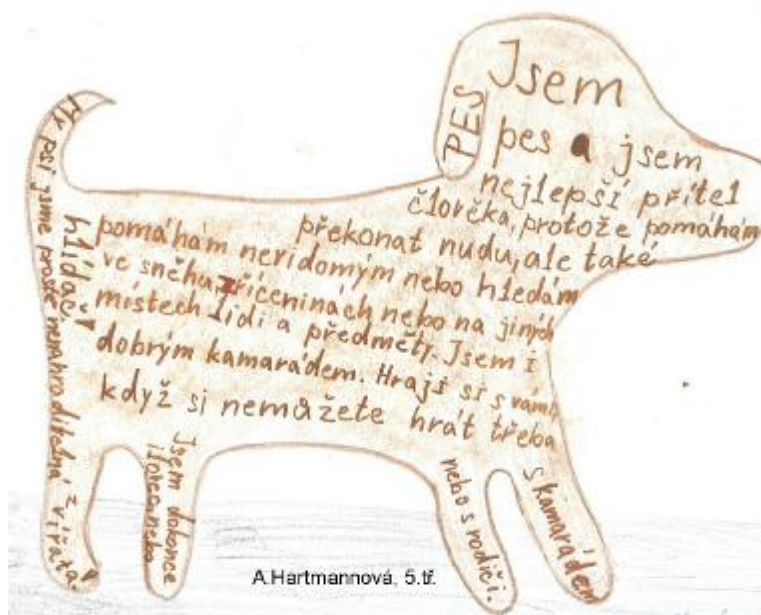 PES
Jsem
pes a jsem
nejlepší přítel
člověka, protože pomáhám
překonat nudu, ale také
pomáhám nevidomým nebo hledám
ve sněhu, zříceninách nebo na jiných
místech lidi a předměty. Jsem i
dobrým kamarádem. Hraji si s vámi,
když si nemůžete hrát třeba
s kamarádem
nebo s rodiči.
Jsem dokonce
i lovec nebo
hlídač.
My psi jsme prostě nenahraditelná zvířata!
A.Hartmannová, 5.tř.